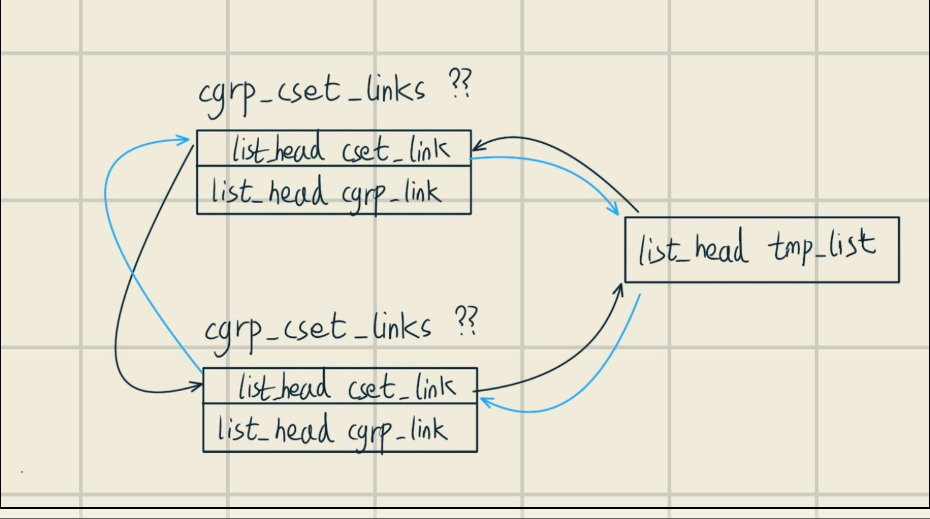 cgrp_cset_links ??
list_head cset_link
list_head cgrp_link
list_head tmp_list
cgrp_cset_links ??
list_head cset_link
list_head cgrp_link